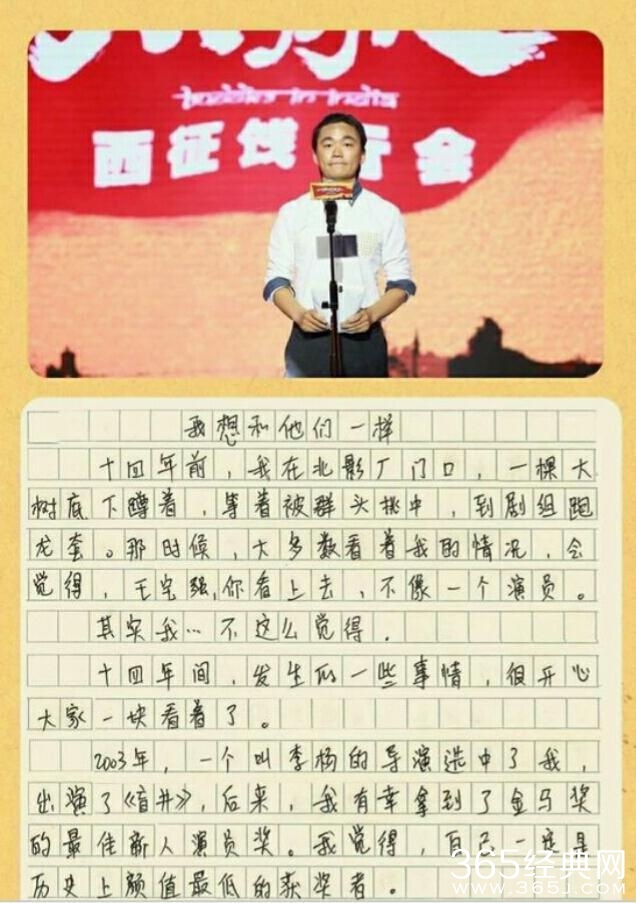 buddies in india
西征饯行会
我想和他们一样
十四年前，我在北影厂门口，一棵大
树底下蹲着，等着被群头挑中，到剧组跑
龙套。那时候，大多数看着我的情况，会
觉得，王宝强，你看上去，不像一个演员。
其实我…不这么觉得.
十四年间，发生的一些事情，很开心
大家一块看着了。
2003年，一个叫李杨的导演选中了我，
出演了《盲井》，后来，我有幸拿到了金马奖
的最佳新人演员奖。我觉得，自己一定是
历史上颜值最低的获奖者。
365经典网
WWW.365J.COM